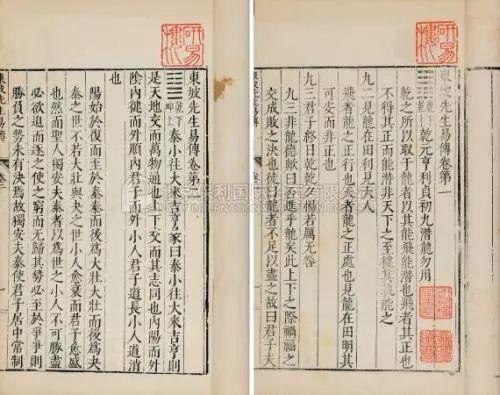 東坡先生易傳卷第一
乾下乾上 乾元亨利貞初九潛龍勿用
乾之所以取于龍者以其能飛能潛也飛者其正也
不得其正而能潛非天下之至健其孰能之
九二見龍在田利見大人
飛者龍之正行也天者龍之正處也見龍在田明其
可安而非正也
九三君子終日乾乾夕惕若厲无咎
九三非龍德歟曰否進乎龍矣此上下之際禍福之
交成敗之決也徒曰龍者不足以盡之故曰君子夫
東坡先生易傳
東坡先生易傳卷第二
乾下坤上 泰小往大來吉亨彖曰泰小往大來吉亨則
是天地交而萬物通也上下交而其志同也內陽而外
陰內健而外順內君子而外小人君子道長小人道消
也
陽始於復而至於泰泰而後為大壯大壯而後為夬
泰之世不若大壯與夬之世小人愈衰而君子愈盛
也然而聖人獨安夫泰者以為世之小人不可勝盡
必欲迫而逐之使之窮而无歸其勢必至於爭爭則
勝負之勢未有決焉故獨安夫泰使君子居中常制
東坡先生易傳